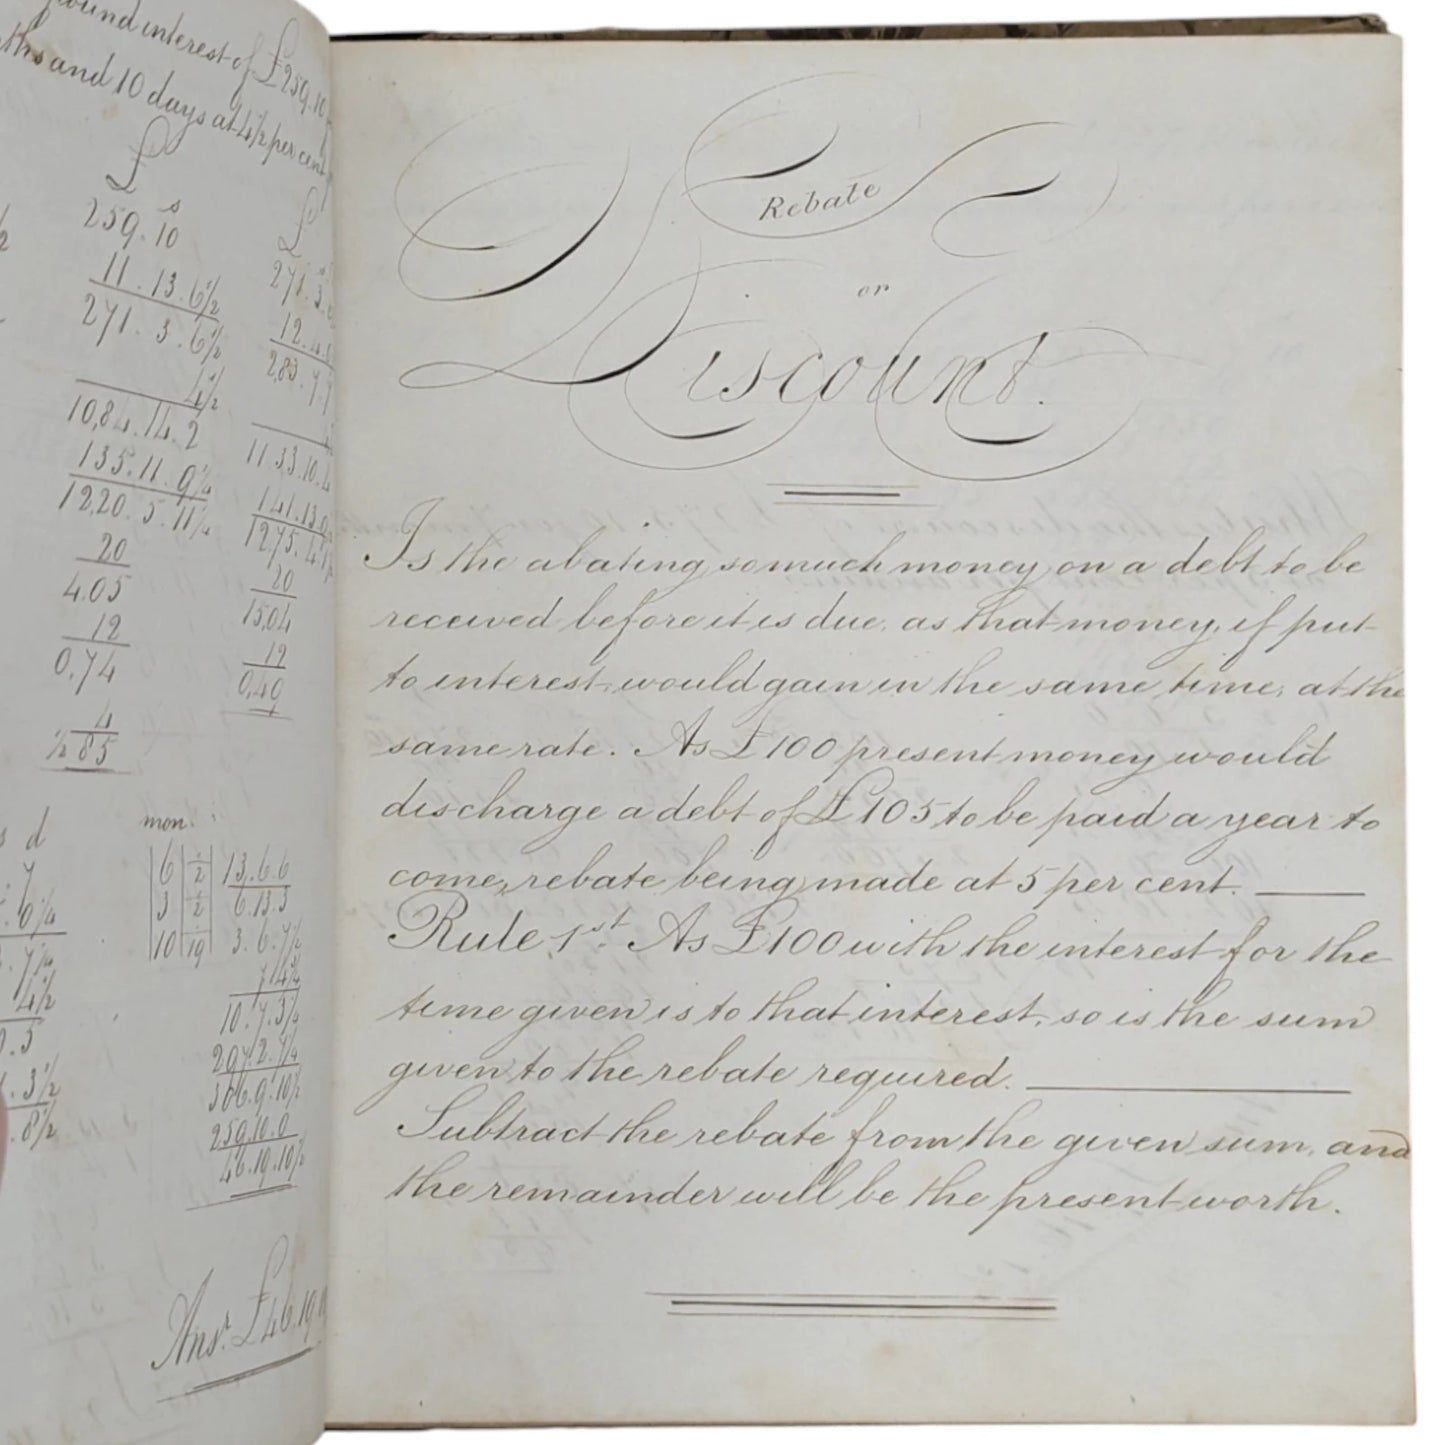 ound interest of £259.10
ths and 10 days at 4½ per cent
£
s
259.10
11.13.6½
271.3.6½
4½
10,84.14.2
135.11.9¼
12,20.5.11¼
20
4.05
12
0,74
4
½ 85
£
271.3.
12.4.
283.7.
11.33.10.
141.13.
12,75.4.
20
15,04
12
0,49
s d
mon.
6 ½ 13.6.6
3 ½ 6.13.3
10 1/9 3.6.7½
7.4¾
10.7.3¼
297.2.7¼
306.9.10½
259.10.0
46.19.10½
Ansr. £46.19.
Rebate
or
Discount.
Is the abating so much money on a debt to be
received before it is due, as that money, if put
to interest, would gain in the same time, at the
same rate. As £100 present money would
discharge a debt of £105 to be paid a year to
come, rebate being made at 5 per cent.
Rule 1st. As £100 with the interest for the
time given is to that interest, so is the sum
given to the rebate required.
Subtract the rebate from the given sum, and
the remainder will be the present worth.